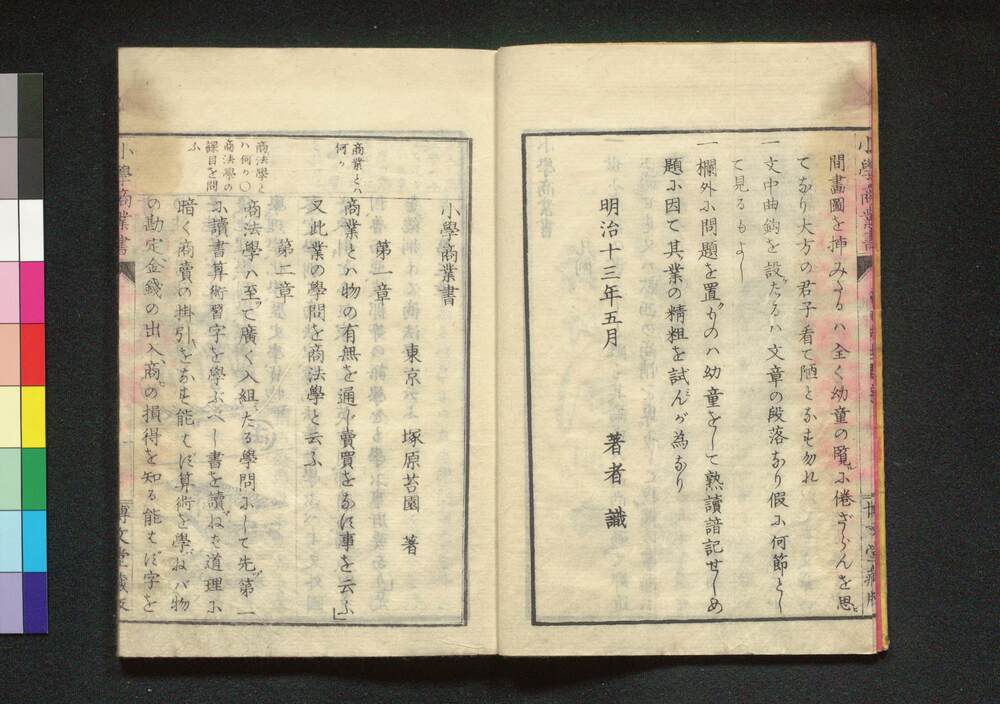 間畫圖を挿みたるハ全く幼童の覧に倦ざらんを思
てなり大方の君子看て陋となす勿れ
一文中曲鈎を設たるハ文章の段落なり假に何節とし
て見るもよし
一欄外に問題を置ものハ幼童をして熟讀諳記せしめ
題に因て其業の精粗を試んが為なり
明治十三年五月
著者識
小學商業書
東京 塚原苔園 著
第一章
商業とハ何か
商業とハ物の有無を通し賣買をなす事を云ふ」
又此業の學問を商法學と云ふ
第二章
商法學とハ何か〇商法學の課目を問ふ
商法學ハ至て廣く入組たる學問にして先第一
に讀書算術習字を學ぶべし書を讀ねば道理に
暗く商賣の掛引をなす能はず算術を學ねバ物
の勘定金錢の出入商の損得を知る能はず字を
小學商業書
博文堂藏版